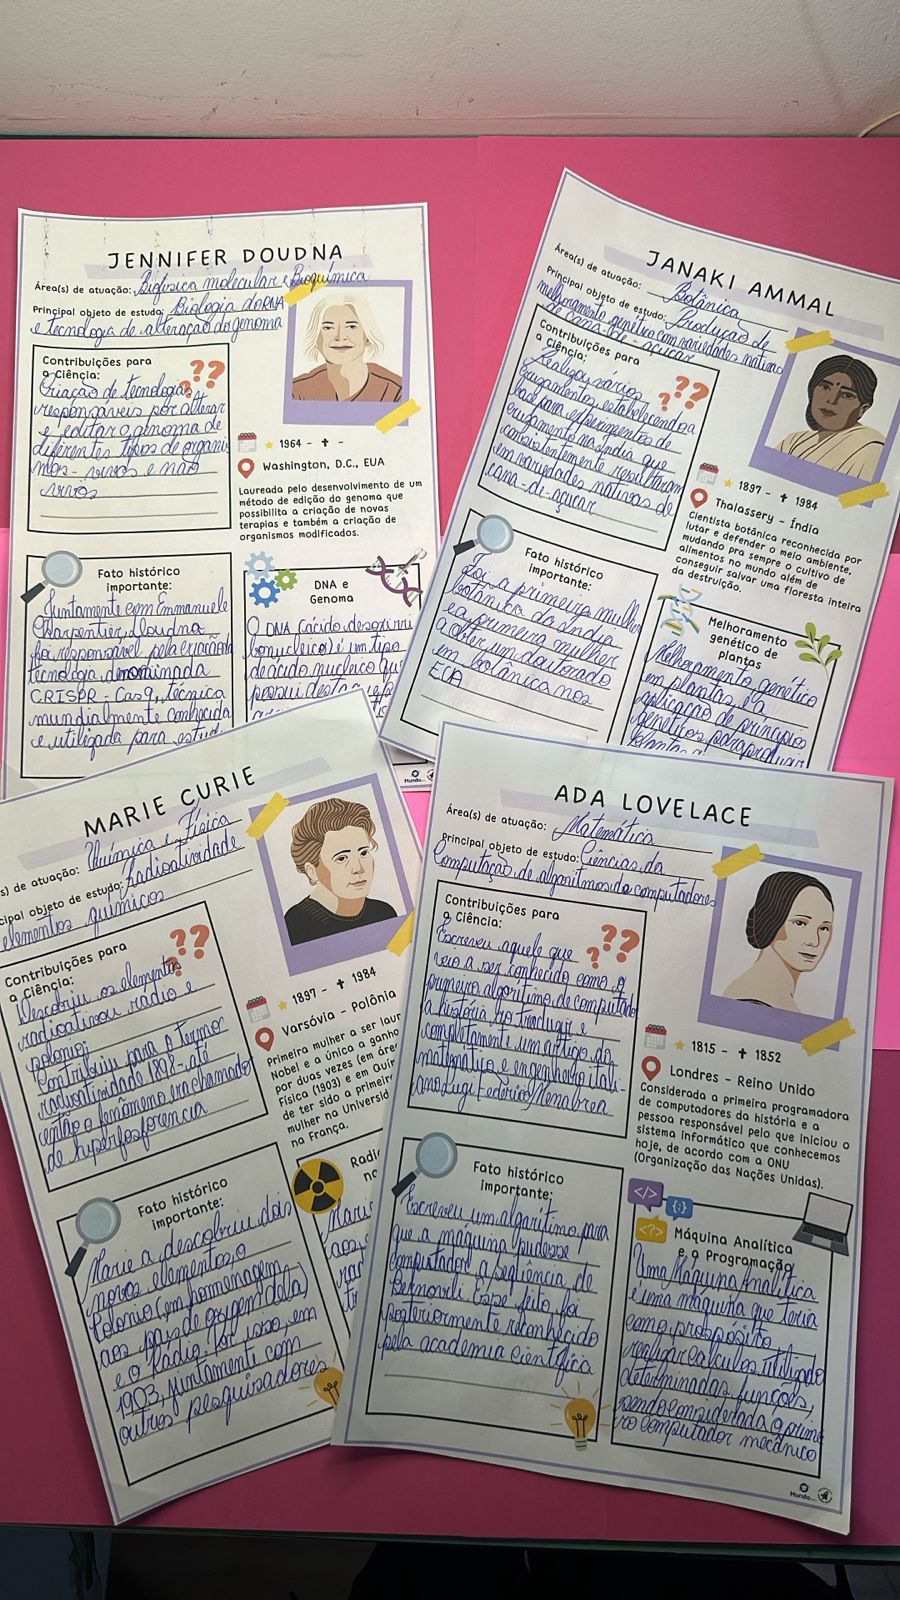 JENNIFER DOUDNA
Área(s) de atuação: Biofísica molecular e Bioquímica
Principal objeto de estudo: Biologia do RNA
e tecnologia de alteração do genoma
Contribuições para
a Ciência:
??
?
Criação de tecnologias
responsáveis por alterar
e editar o genoma de
diferentes tipos de organis
mos - vivos e não
vivos
1964 - ✝ -
Washington, D.C., EUA
Laureada pelo desenvolvimento de um
método de edição do genoma que
possibilita a criação de novas
terapias e também a criação de
organismos modificados.
Fato histórico
importante:
Juntamente com Emmanuele
Charpentier, Doudna
foi responsável pela criação da
tecnologia denominada
CRISPR - Cas9, técnica
mundialmente conhecida
e utilizada para estud
DNA e
Genoma
O DNA (ácido desoxirri
bonucleico) é um tipo
de ácido nucleico que
possui destaque
Mundo
JANAKI AMMAL
Área(s) de atuação: Botânica
Principal objeto de estudo: Produção de
melhoramento genético com variedades nativas
de cana-de-açúcar
Contribuições para
a Ciência:
??
?
Realizou vários
cruzamentos estabelecendo a
base para experimentos de
cruzamento na Índia que
consistentemente resultaram
em variedades nativas de
cana-de-açúcar
1897 - ✝ 1984
Thalassery - Índia
Cientista botânica reconhecida por
lutar e defender o meio ambiente,
mudando pra sempre o cultivo de
alimentos no mundo além de
conseguir salvar uma floresta inteira
da destruição.
Fato histórico
importante:
Foi a primeira mulher
botânica da Índia
e a primeira mulher
a obter um doutorado
em botânica nos
EUA
Melhoramento
genético de
plantas
Melhoramento genético
em plantas, é a
aplicação de princípios
genéticos para produzir
plantas
MARIE CURIE
s) de atuação: Química e Física
cipal objeto de estudo: Radioatividade
elementos químicos
Contribuições para
a Ciência:
??
?
Descobriu os elementos
radioativou radio e
polonio;
Contribuiu para o termo
radioatividade 1898 - até
então o fenômeno era chamado
de hiperfosforencia
1897 - ✝ 1984
Varsóvia - Polônia
Primeira mulher a ser laur
Nobel e a única a ganha
por duas vezes (em área
Física (1903) e em Quím
de ter sido a primeira
mulher na Universid
na França.
Fato histórico
importante:
Marie a descobriu dois
novos elementos, o
Polonio (em homenagem
aos pais de origem dela)
e o Rádio. Por isso, em
1903, juntamente com
outros pesquisadores
Radio
na
Marie
ADA LOVELACE
Área(s) de atuação: Matemática
Principal objeto de estudo: Ciências da
Computação, de algoritmos do computadores
Contribuições para
a Ciência:
??
?
Escreveu aquele que
veio a ser conhecido como o
primeiro algoritimo de computado
a história, ao traduzir e
completamente um artigo do
matemático e engenheiro itali-
ano Luigi Federico Menabrea
1815 - ✝ 1852
Londres - Reino Unido
Considerada a primeira programadora
de computadores da história e a
pessoa responsável pelo que iniciou o
sistema informático que conhecemos
hoje, de acordo com a ONU
(Organização das Nações Unidas).
Fato histórico
importante:
Escreveu um algorítimo para
que a máquina pudesse
computador a seqüência de
Bernovili. Esse feito, foi
posteriormente reconhecido
pela academia científica
</>
{}
<?>
Máquina Analítica
e a Programação
Uma Máquina Analítica
é uma máquina que teria
como prospósito
realizar calculos utilizado
determinadas funções,
sendo considerada o prime
iro computador mecânico
Mundo